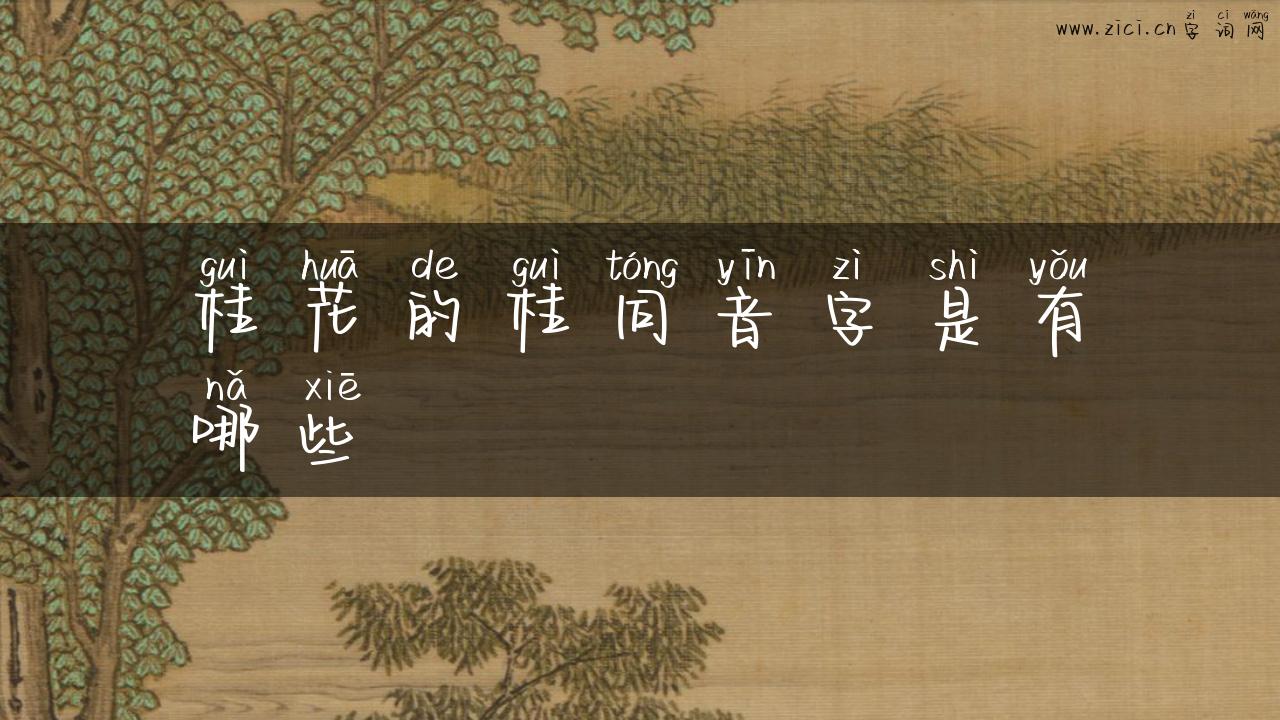 zì cí wǎng
www.zici.cn 字词网
guì huā de guì tóng yīn zì shì yǒu
桂花的桂同音字是有
nǎ xiē
哪些